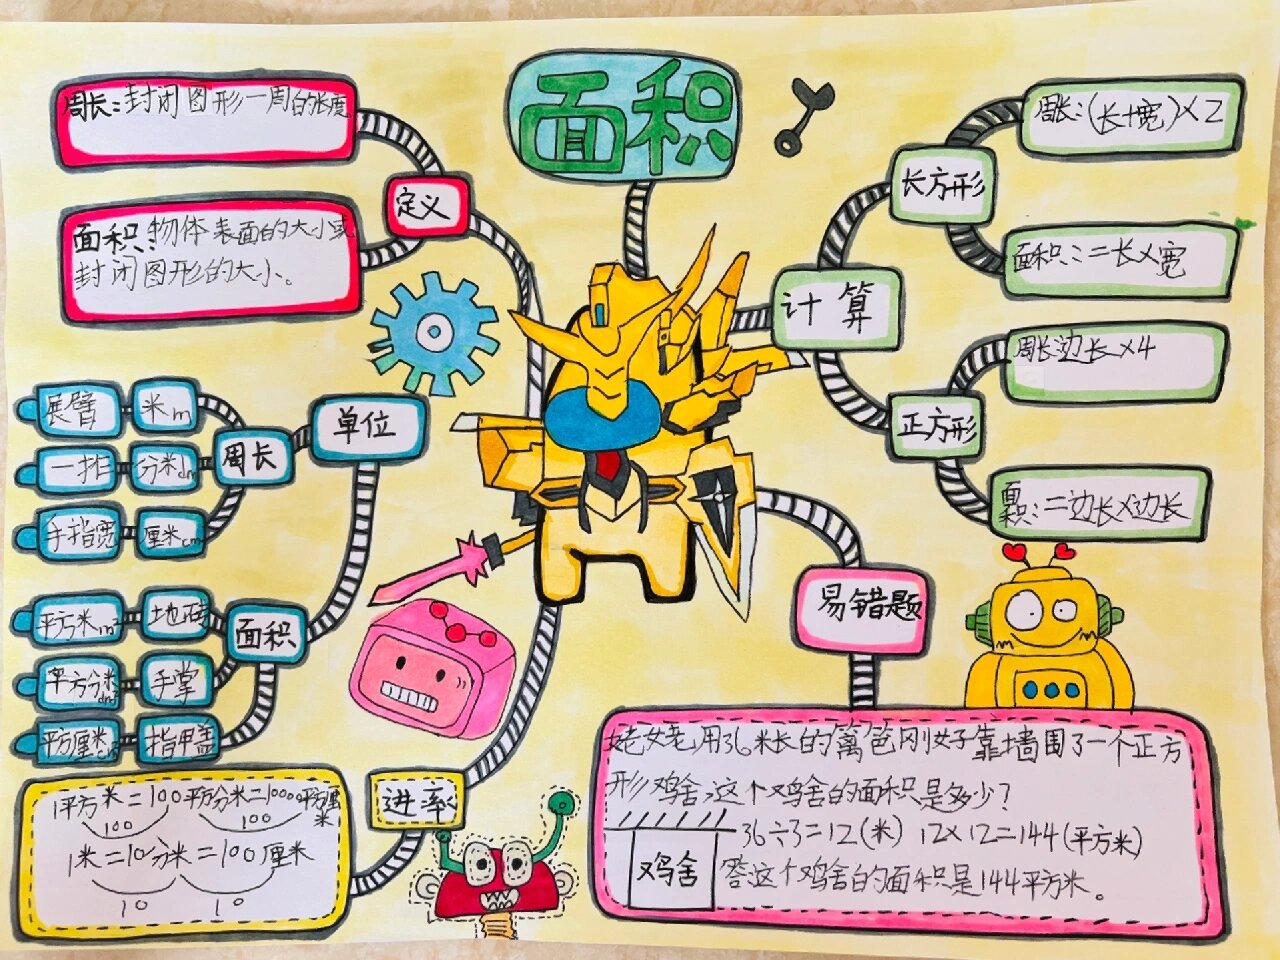 面积
周长:封闭图形一周的长度
定义
面积:物体表面的大小或
封闭图形的大小。
单位
周长
展臂 米m
一拃 分米dm
手指宽 厘米cm
面积
平方米m² 地砖
平方分米dm² 手掌
平方厘米 指甲盖
进率
1平方米=100平方分米=10000平方厘米
100 100
1米=10分米=100厘米
10 10
计算
长方形
周长:(长+宽)×2
面积:=长×宽
正方形
周长边长×4
面积:=边长×边长
易错题
姥姥用36米长的篱笆刚好靠墙围了一个正方
形鸡舍,这个鸡舍的面积是多少?
36÷3=12(米) 12×12=144(平方米)
鸡舍
答这个鸡舍的面积是144平方米。